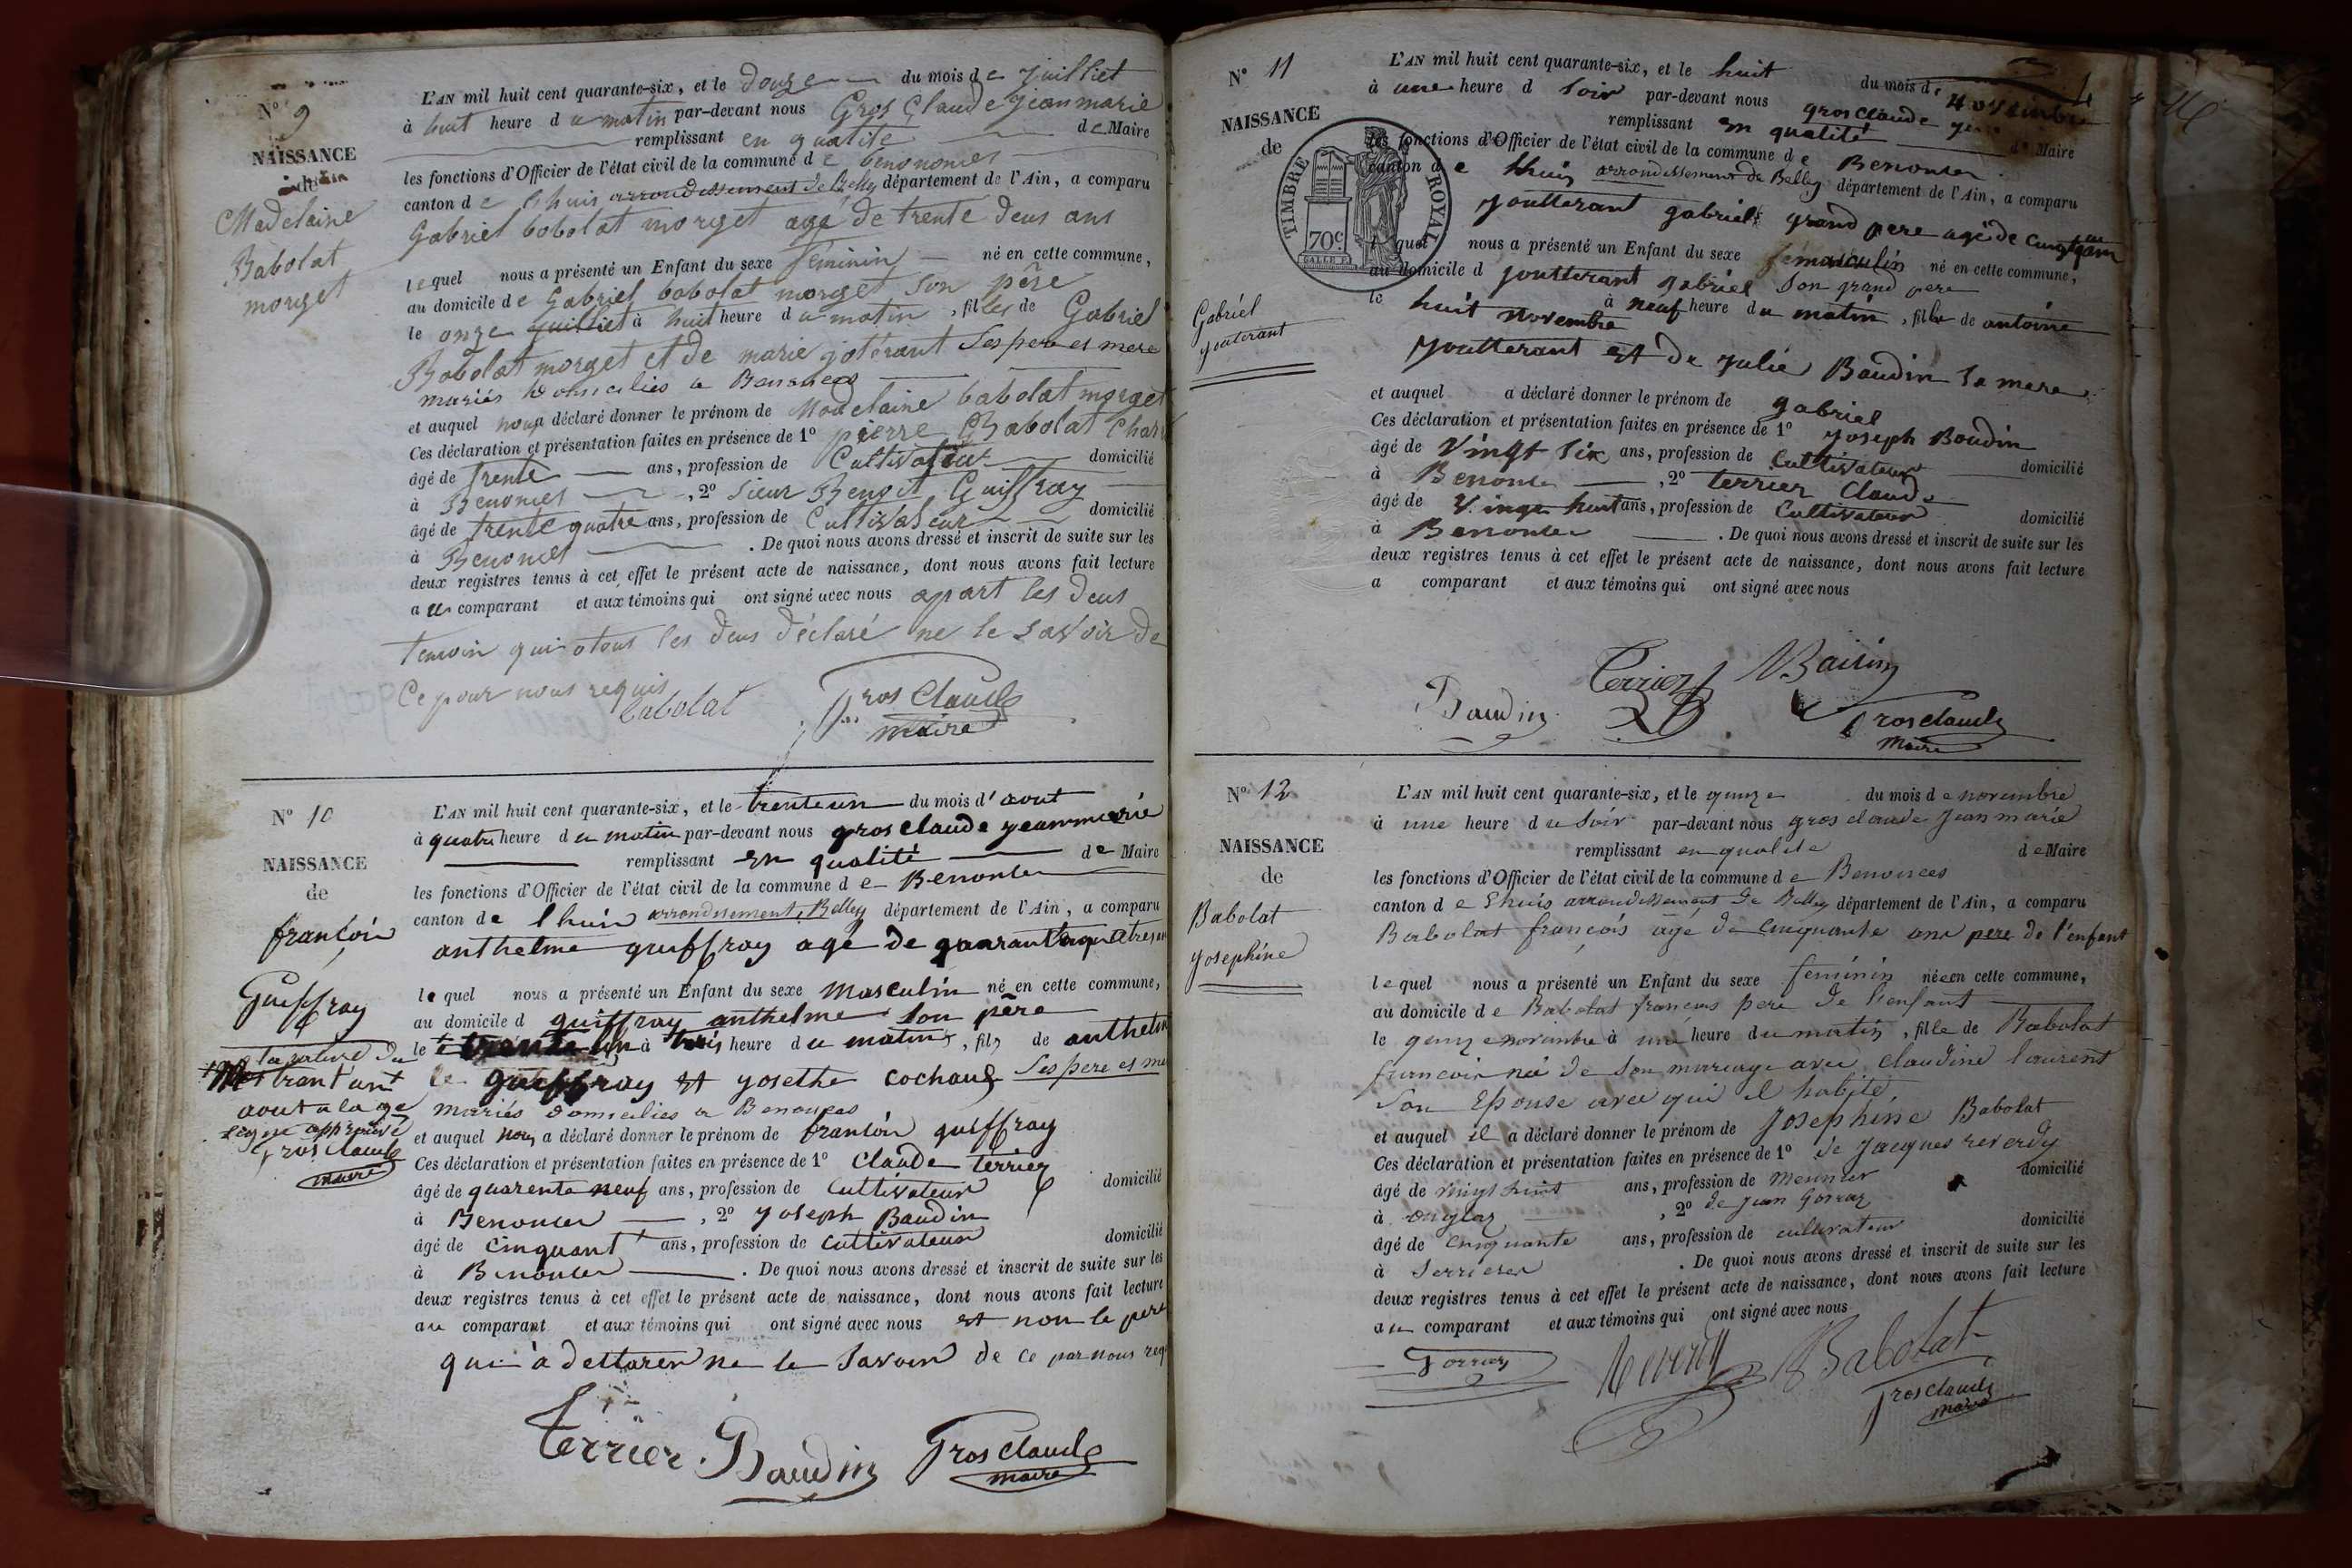 N° 9
NAISSANCE
de
Madelaine
Babolat
morget
L'AN mil huit cent quarante-six, et le douze du mois de juilliet
à huit heure du matin par-devant nous Gros Claude jean marie
remplissant en qualité de Maire
les fonctions d'Officier de l'état civil de la commune de benonces
canton de lhuis arrondissement de Belley département de l'Ain, a comparu
Gabriel bobolat morget agé de trente deus ans
lequel nous a présenté un Enfant du sexe féminin né en cette commune,
au domicile de Gabriel bobolat morget son père
le onze juilliet à huit heure du matin, filles de Gabriel
Bobolat morget et de marie jotérant ses pere et mere
mariés domicilies a Benonces
et auquel nous a déclaré donner le prénom de Madelaine babolat morget
Ces déclaration et présentation faites en présence de 1° pierre Babolat
âgé de trente ans, profession de Cultivateur domicilié
à Benonces, 2° sieur Benoit Guiffray
âgé de trente quatre ans, profession de Cultivateur domicilié
à Benonces. De quoi nous avons dressé et inscrit de suite sur les
deux registres tenus à cet effet le présent acte de naissance, dont nous avons fait lecture
au comparant et aux témoins qui ont signé avec nous apart les deus
temoin qui otous les deus déclaré ne le savoir de
Ce pour nous requis
babolat
Gros Claude
maire
N° 10
NAISSANCE
de
françois
Guiffray
trant un
aout a la 2e
ligne approuvé
Gros Claude
maire
L'AN mil huit cent quarante-six, et le trenteun du mois d'aout
à quatre heure du matin par-devant nous gros claude jeanmarie
remplissant en qualité de Maire
les fonctions d'Officier de l'état civil de la commune de Benonces
canton de lhuis arrondissement, Belley département de l'Ain, a comparu
anthelme guiffray agé de quarantequatre
lequel nous a présenté un Enfant du sexe masculin né en cette commune,
au domicile d guiffray anthelme son père
le trante un à trois heure du matin, fils de anthelm
le guiffray et josethe cochand ses pere et me
mariés domicilies a Benonces
et auquel nous a déclaré donner le prénom de françois guiffray
Ces déclaration et présentation faites en présence de 1° Claude terrier
âgé de quarente neuf ans, profession de Cultivateur domicilié
à Benonces, 2° joseph Baudin
âgé de cinquant ans, profession de Cultivateur domicilié
à Benonces. De quoi nous avons dressé et inscrit de suite sur les
deux registres tenus à cet effet le présent acte de naissance, dont nous avons fait lecture
au comparant et aux témoins qui ont signé avec nous et non le pere
qui a dellarer ne le savoir de ce par nous req
terrier
Baudin
Gros Claude
maire
N° 11
NAISSANCE
de
TIMBRE ROYAL
70c
Gabriel
joutterant
L'AN mil huit cent quarante-six, et le huit du mois de novembre
à une heure d soir par-devant nous gros claude
remplissant en qualité de Maire
les fonctions d'Officier de l'état civil de la commune de Benonces
canton de lhuis arrondissement de Belley département de l'Ain, a comparu
joutterant gabriel grand pere agé de
lequel nous a présenté un Enfant du sexe masculin né en cette commune,
au domicile d joutterant gabriel son grand pere
le huit novembre à neuf heure du matin, fils de antoine
joutterant et de julie Baudin sa mere
et auquel a déclaré donner le prénom de gabriel
Ces déclaration et présentation faites en présence de 1° joseph Baudin
âgé de vingt six ans, profession de Cultivateur domicilié
à Benonces, 2° terrier Claude
âgé de vingt huit ans, profession de Cultivateur domicilié
à Benonces. De quoi nous avons dressé et inscrit de suite sur les
deux registres tenus à cet effet le présent acte de naissance, dont nous avons fait lecture
a comparant et aux témoins qui ont signé avec nous
Baudin
Terrier
Gros Claude
Maire
N° 12
NAISSANCE
de
Babolat
josephine
L'AN mil huit cent quarante-six, et le quinze du mois de novembre
à une heure du soir par-devant nous gros claude jean marie
remplissant en qualité de Maire
les fonctions d'Officier de l'état civil de la commune de Benonces
canton de Lhuis arrondissement de Belley département de l'Ain, a comparu
Babolat françois âgé de cinquante ans pere de l'enfant
lequel nous a présenté un Enfant du sexe feminin née en cette commune,
au domicile de Babolat francois pere de l'enfant
le quinze novembre à une heure du matin, fille de Babolat
francois né de son mariage avec claudine laurent
son Epouse avec qui il habite
et auquel il a déclaré donner le prénom de Josephine Babolat
Ces déclaration et présentation faites en présence de 1° de Jacques reverdy
âgé de vingt huit ans, profession de Meunier domicilié
à ouglas, 2° de Jean Gorraz
âgé de cinquante ans, profession de cultivateur domicilié
à Serrieres. De quoi nous avons dressé et inscrit de suite sur les
deux registres tenus à cet effet le présent acte de naissance, dont nous avons fait lecture
au comparant et aux témoins qui ont signé avec nous
Reverdy
Babolat
Gros Claude
maire